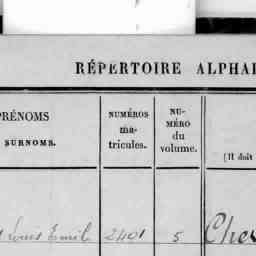 RÉPERTOIRE ALPHA
PRÉNOMS
SURNOMS.
NUMÉROS
ma-
tricules.
NU-
MÉRO
du
volume.
[Il doit
Louis Emile 2401 5 Che